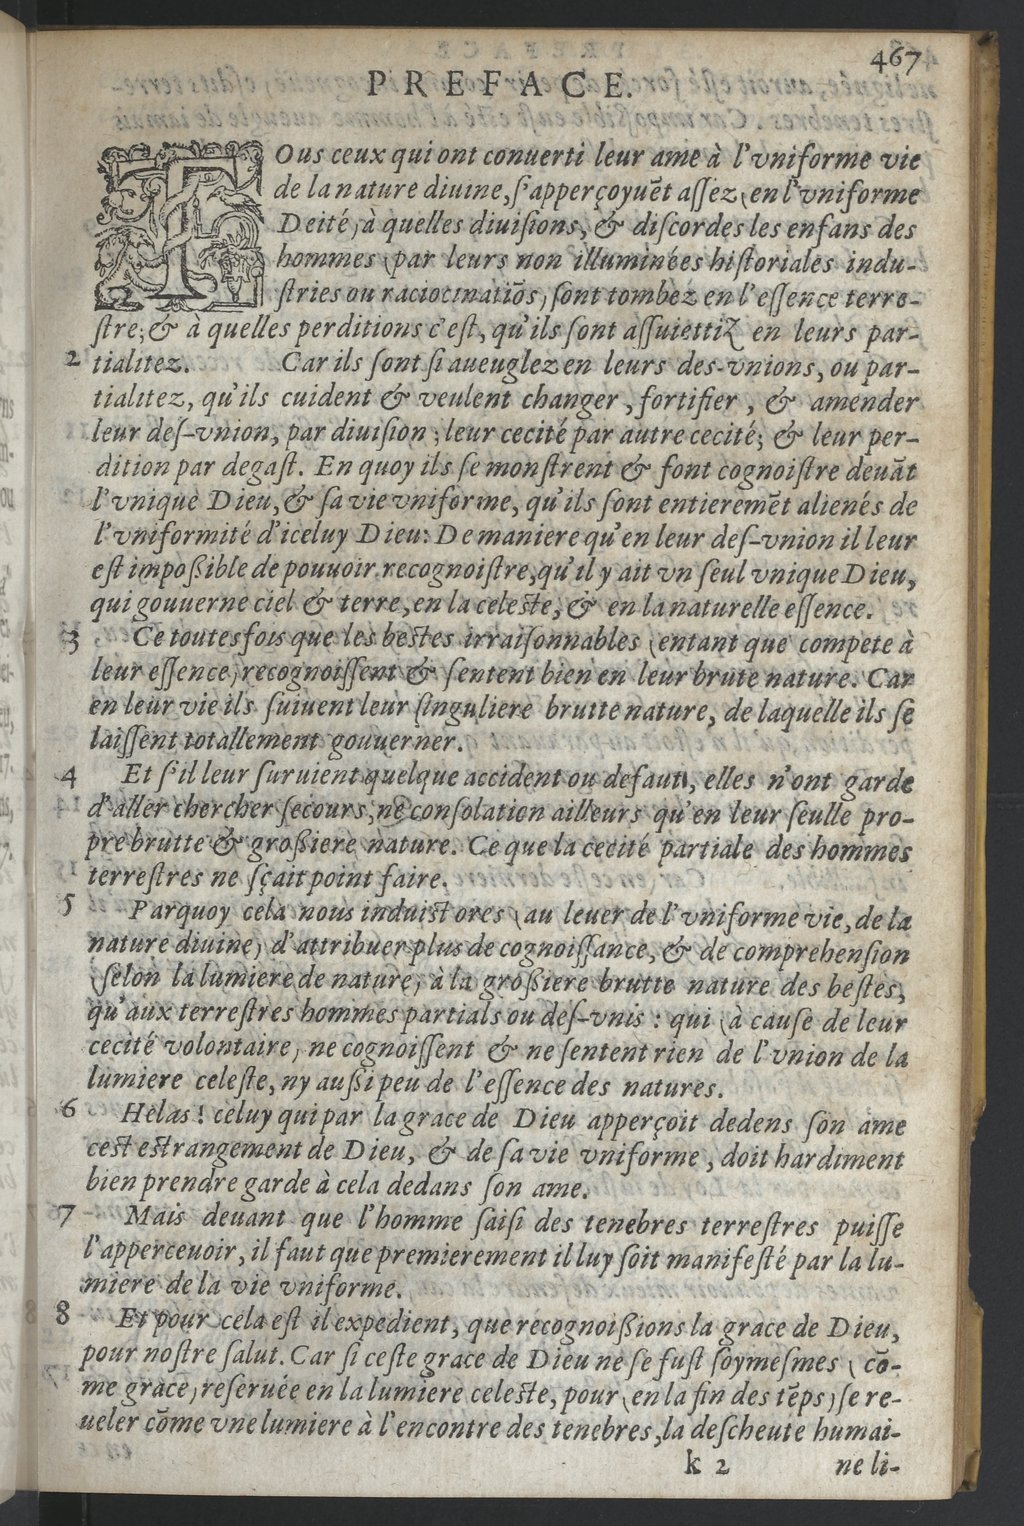 467
PREFACE.
TOus ceux qui ont conuerti leur ame à l'vniforme vie
de la nature diuine, s'apperçoyuēt assez (en l'vniforme
Deité) à quelles diuisions, & discordes les enfans des
hommes (par leurs non illuminées historiales indu-
stries ou raciocinatiōs) sont tombez en l'essence terre-
stre; & à quelles perditions c'est, qu'ils sont assuiettiz en leurs par-
2 tialitez. Car ils sont si aueuglez en leurs des-vnions, ou par-
tialitez, qu'ils cuident & veulent changer, fortifier, & amender
leur des-vnion, par diuision; leur cecité par autre cecité; & leur per-
dition par degast. En quoy ils se monstrent & font cognoistre deuāt
l'vnique Dieu, & sa vie vniforme, qu'ils sont entieremēt alienés de
l'vniformité d'iceluy Dieu: De maniere qu'en leur des-vnion il leur
est impoßible de pouuoir recognoistre, qu'il y ait vn seul vnique Dieu,
qui gouuerne ciel & terre, en la celeste, & en la naturelle essence.
3 Ce toutesfois que les bestes irraisonnables (entant que compete à
leur essence) recognoissent & sentent bien en leur brute nature. Car
en leur vie ils suiuent leur singuliere brutte nature, de laquelle ils se
laissent totallement gouuerner.
4 Et s'il leur suruient quelque accident ou defaut, elles n'ont garde
d'aller chercher secours, ne consolation ailleurs qu'en leur seulle pro-
pre brutte & großiere nature. Ce que la cecité partiale des hommes
terrestres ne sçait point faire.
5 Parquoy cela nous induist ores (au leuer de l'vniforme vie, de la
nature diuine) d'attribuer plus de cognoissance, & de comprehension
(selon la lumiere de nature) à la großiere brutte nature des bestes,
qu'aux terrestres hommes partials ou des-vnis: qui (à cause de leur
cecité volontaire) ne cognoissent & ne sentent rien de l'vnion de la
lumiere celeste, ny außi peu de l'essence des natures.
6 Helas! celuy qui par la grace de Dieu apperçoit dedens son ame
cest estrangement de Dieu, & de sa vie vniforme, doit hardiment
bien prendre garde à cela dedans son ame.
7 Mais deuant que l'homme saisi des tenebres terrestres puisse
l'apperceuoir, il faut que premierement il luy soit manifesté par la lu-
miere de la vie vniforme.
8 Et pour cela est il expedient, que recognoißions la grace de Dieu,
pour nostre salut. Car si ceste grace de Dieu ne se fust soymesmes (cō-
me grace) reseruée en la lumiere celeste, pour (en la fin des tēps) se re-
ueler cōme vne lumiere à l'encontre des tenebres, la descheute humai-
k 2 ne li-